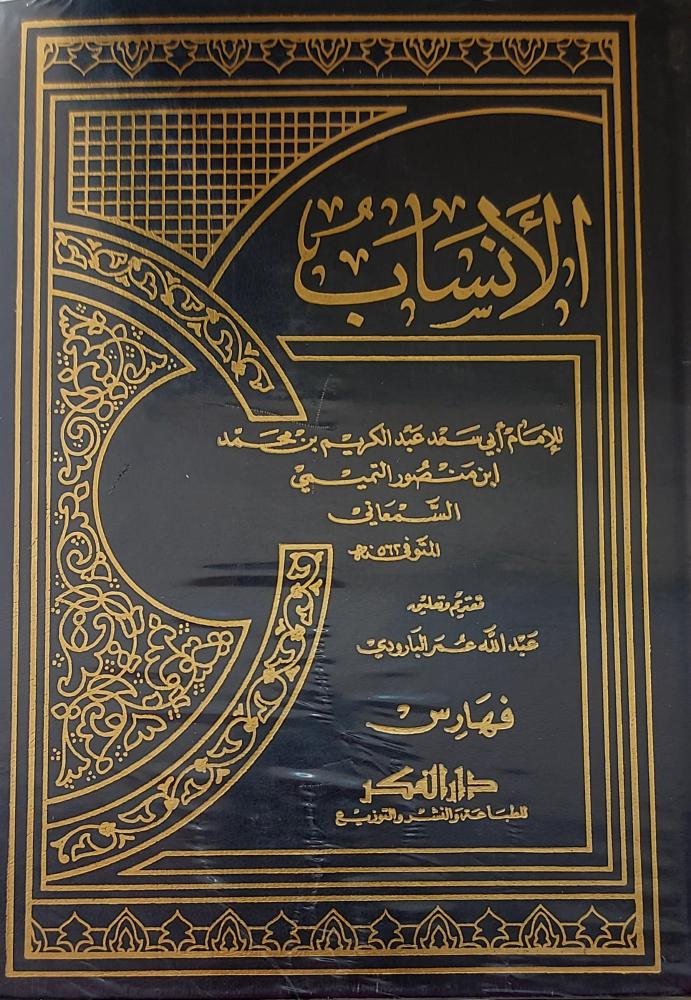 الأَنسَابُ
للإمَام أبي سَعد عَبْد الكريم بن محَمَّد
ابن مَنصُور التميمي
السَّمعَاني
المتَوفى ٥٦٢هـ
تقديم وتعليق
عَبْد الله عُمَر البَارودي
فهَارِس
دار الفكر
للطبَاعَة وَالنشر وَالتوزيع